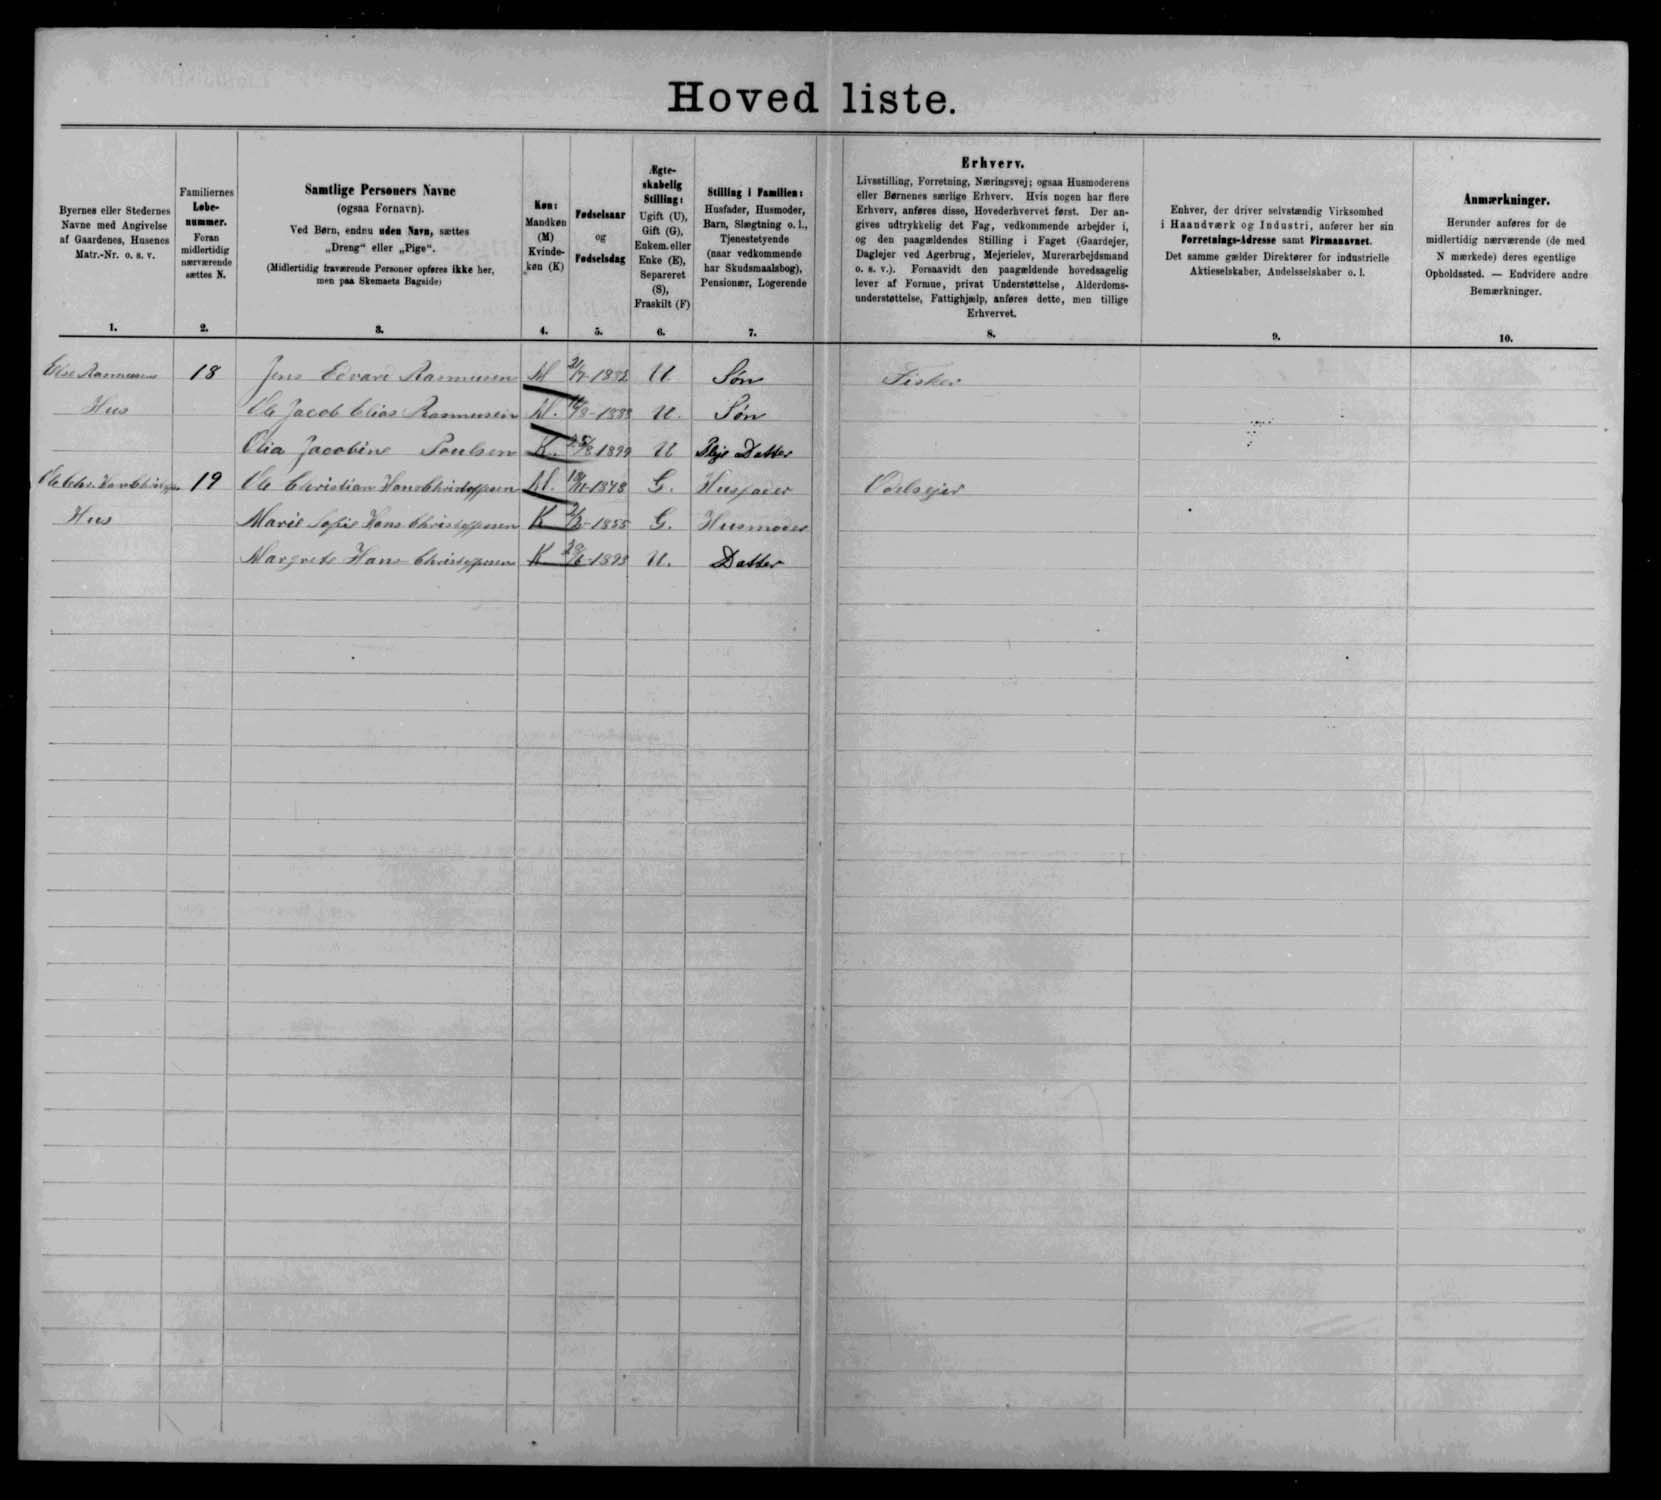 Hoved liste.
Byernes eller Stedernes
Navne med Angivelse
af Gaardenes, Husenes
Matr.-Nr. o. s. v.
1.
Familiernes
Løbe-
nummer.
Foran
midlertidig
nærværende
sættes N.
2.
Samtlige Personers Navne
(ogsaa Fornavn).
Ved Børn, endnu uden Navn, sættes
„Dreng“ eller „Pige“.
(Midlertidig fraværende Personer opføres ikke her,
men paa Skemaets Bagside)
3.
Køn:
Mandkøn
(M)
Kvinde-
køn (K)
4.
Fødselsaar
og
Fødselsdag
5.
Ægte-
skabelig
Stilling:
Ugift (U),
Gift (G),
Enkem. eller
Enke (E),
Separeret
(S),
Fraskilt (F)
6.
Stilling i Familien:
Husfader, Husmoder,
Barn, Slægtning o. l.,
Tjenestetyende
(naar vedkommende
har Skudsmaalsbog),
Pensionær, Logerende
7.
Erhverv.
Livsstilling, Forretning, Næringsvej; ogsaa Husmoderens
eller Børnenes særlige Erhverv. Hvis nogen har flere
Erhverv, anføres disse, Hovederhvervet først. Der an-
gives udtrykkelig det Fag, vedkommende arbejder i,
og den paagældendes Stilling i Faget (Gaardejer,
Daglejer ved Agerbrug, Mejerielev, Murerarbejdsmand
o. s. v.). Forsaavidt den paagældende hovedsagelig
lever af Formue, privat Understøttelse, Alderdoms-
understøttelse, Fattighjælp, anføres dette, men tillige
Erhvervet.
8.
Enhver, der driver selvstændig Virksomhed
i Haandværk og Industri, anfører her sin
Forretnings-Adresse samt Firmanavnet.
Det samme gælder Direktører for industrielle
Aktieselskaber, Andelsselskaber o. l.
9.
Anmærkninger.
Herunder anføres for de
midlertidig nærværende (de med
N mærkede) deres egentlige
Opholdssted. — Endvidere andre
Bemærkninger.
10.
Else Rasmussens 18 Jens Edvard Rasmussen M 1882 U Søn Fisker
Hus Ole Jacob Elias Rasmussen M. 1888 U. Søn
Olia Jacobine Poulsen K. 1899 U Pleje Datter
Ole Chr. Hans Christoffersen 19 Ole Christian Hans Christoffersen M. 1848 G. Husfader Odelsejer
Hus Marie Sofie Hans Christoffersen K 1855 G. Husmoder
Margrete Hans Christoffersen K 1893 U. Datter